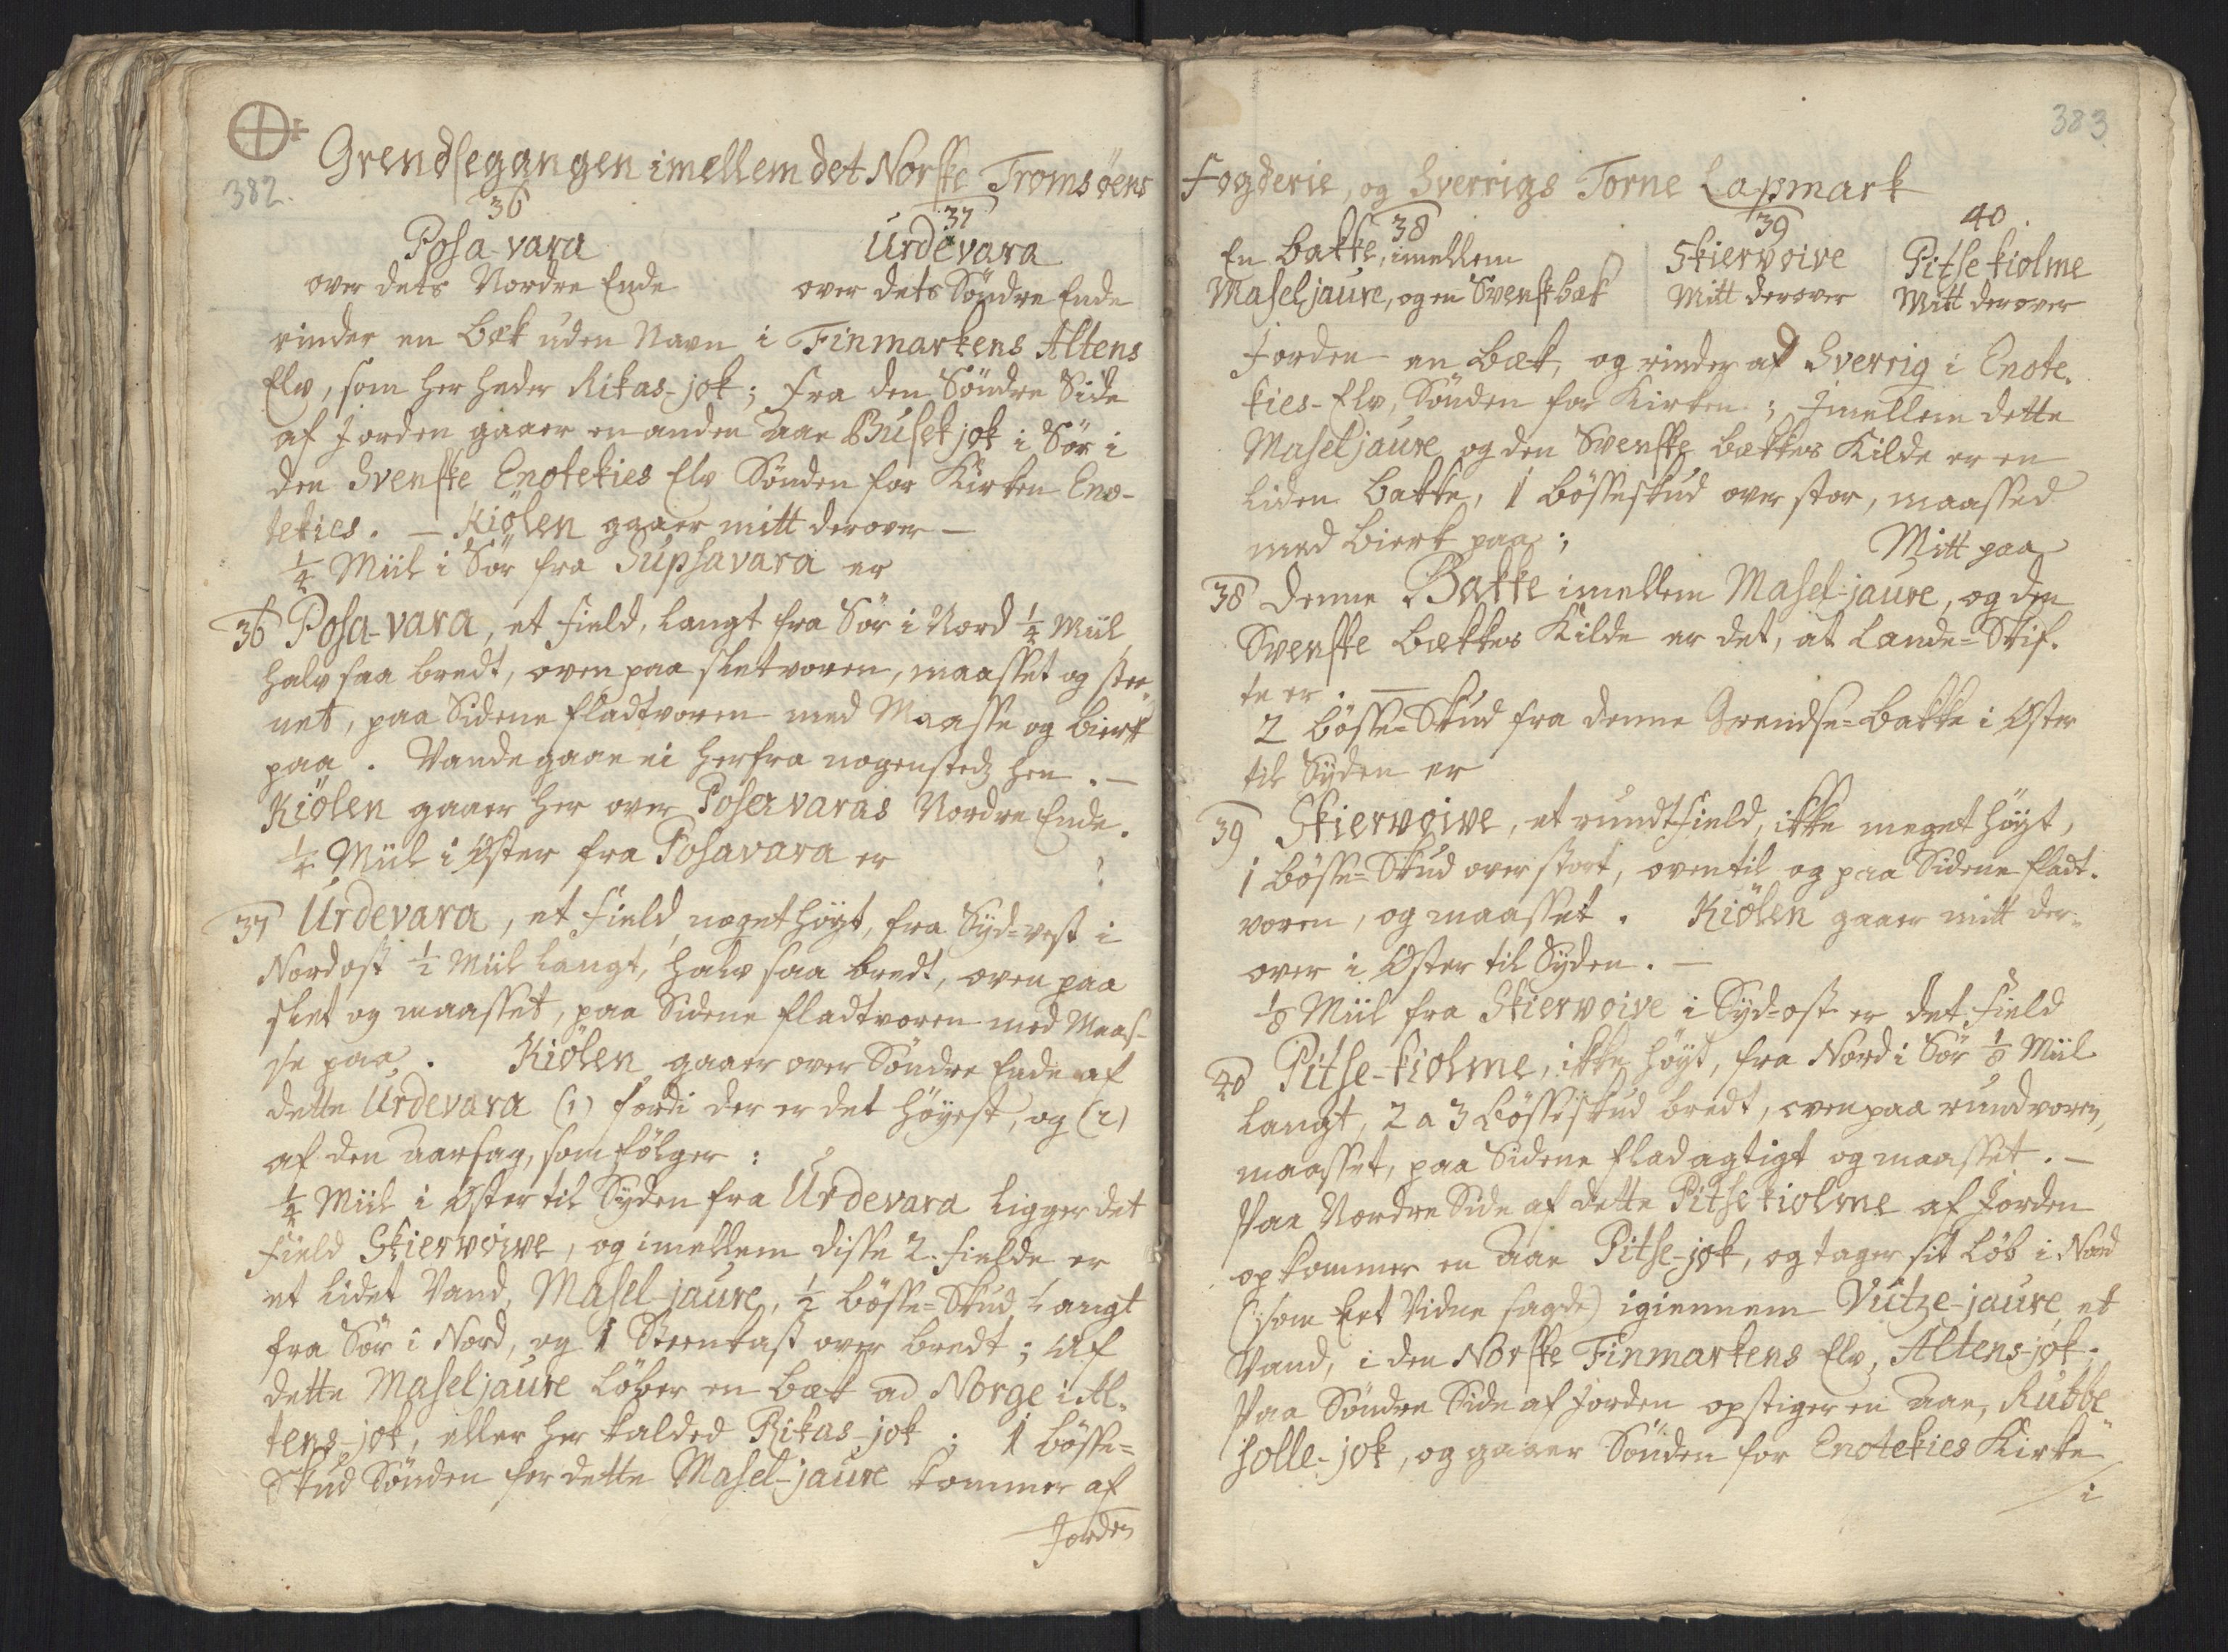 382.
Grendsegangen imellem det Norske Tromsöens
36
Posa-vara
over dets Nordre Ende
37
Urdevara
over dets Söndre Ende
rinder en Bek uden Navn i Finmarkens Altens
Elv, som her heder Rikas-jok; fra den Söndre Side
af Jorden gaaer en anden Aae Busekjok i Sör i
den Svenske Enotekies Elv Sönden for Kirken Eno-
tekies. — Kiölen gaaer mitt derover —
1/4 Miil i Sör fra Supsavara er
36 Posa-vara, et Field, langt fra Sör i Nord 1/4 Miil
halv saa bredt, oven paa sletvoren, maasset og stee-
net, paa Sidene fladtvoren med Maasse og Bierk
paa. Vande gaae ei herfra nogensteds hen. —
Kiölen gaaer her over Posavaras Nordre Ende.
1/4 Miil i Öster fra Posavara er
37 Urdevara, et Field, noget höyt, fra Syd-vest i
Nordost 1/2 Miil langt, halv saa bredt, oven paa
slet og maasset, paa Sidene fladtvoren med Maas-
se paa. Kiölen gaaer over Söndre Ende af
dette Urdevara (1) fordi der er det höyest, og (2)
af den Aarsag, som fölger:
1/4 Miil i Öster til Syden fra Urdevara ligger det
Field Skiervoive, og imellem disse 2. Fielde er
et lidet Vand, Masel-jaure, 1/2 Bösse-Skud langt
fra Sör i Nord, og 1 Steenkast over bredt; Af
dette Maseljaure löber en Bæk ad Norge i Al-
tens-jok, eller her kalded Rikas-jok; 1 Bösse-
Skud Sönden for dette Masel-jaure kommer af
Jorden
383
Fogderie, og Sverrigs Torne Lapmark
38
En Bakke, imellem
Maseljaure, og en Svensk bæk
39
Skiervoive
Mitt derover
40.
Pitse kiolme
Mitt derover
Jorden en Bæk, og rinder af Sverrig i Enote-
kies-Elv, Sönden for Kirken; Imellem dette
Maseljaure og den Svenske Bækkes Kilde er en
liden Bakke, 1 Bösseskud over stor, maassed
med Bierk paa;
Mitt paa
38 denne Bakke imellem Masel-jaure, og den
Svenske Bækkes Kilde er det, at Lande-Skif-
te er. —
2 Bösse-Skud fra denne Grendse-Bakke i Öster
til Syden er
39 Skiervoive, et rundt Field, ikke meget höyt,
1 Bösse-Skud over stort, oventil og paa Sidene fladt-
voren, og maasset. Kiölen gaaer mitt der-
over i Öster til Syden. —
1/8 Miil fra Skiervoive i Syd-ost er det Field
40 Pitse-kiolme, ikke höyt, fra Nord i Sör 1/8 Miil
langt, 2 a 3 Bösseskud bredt, oven paa rundvoren,
maasset, paa Sidene fladagtigt og maasset. —
Paa Nordre Side af dette Pitse kiolme af Jorden
opkommer en Aae Pitse-jok, og tager sit Löb i Nord
(:som Eet Vidne sagde) igiennem Vutze-jaure, et
Vand, i den Norske Finmarkens Elv, Altens-jok.
Paa Söndre Side af Jorden opstiger en Aae, Rubbe
jolle-jok, og gaaer Sönden for Enotekies Kirke
i